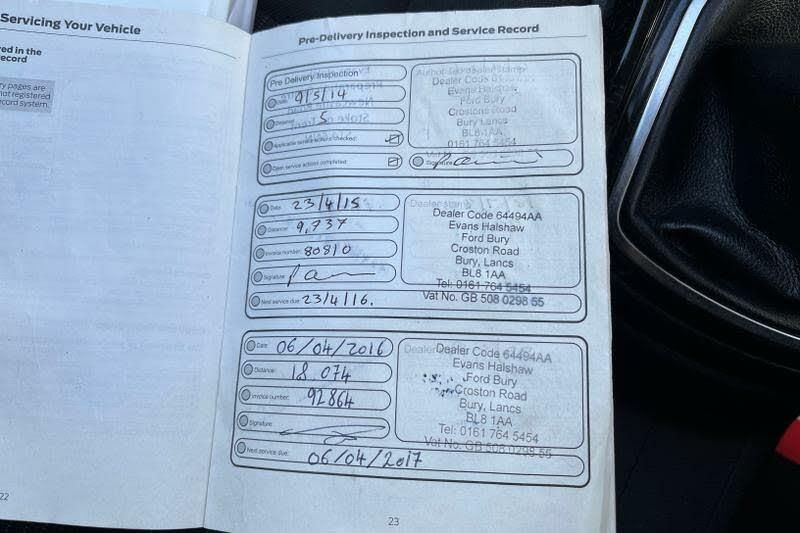 Servicing Your Vehicle
red in the
record
y pages are
not registered
ecord system.
22
Pre-Delivery Inspection and Service Record
Pre Delivery Inspection
Date: 9/5/14
Distance: 5
Applicable service actions checked:
Open service actions completed:
Authorised dealer stamp
Dealer Code
Evans Halshaw
Ford Bury
Crostons Road
Bury Lancs
BL8 1AA
0161 764 5454
Signature:
Date: 23/4/15
Distance: 9,737
Invoice number: 80810
Signature:
Next service due: 23/4/16.
Dealer stamp
Dealer Code 64494AA
Evans Halshaw
Ford Bury
Croston Road
Bury, Lancs
BL8 1AA
Tel: 0161 764 5454
Vat No. GB 508 0298 55
Date: 06/04/2016
Distance: 18,074
Invoice number: 92864
Signature:
Next service due: 06/04/2017
Dealer
Dealer Code 64494AA
Evans Halshaw
Ford Bury
Croston Road
Bury, Lancs
BL8 1AA
Tel: 0161 764 5454
Vat No. GB 508 0298 55
23